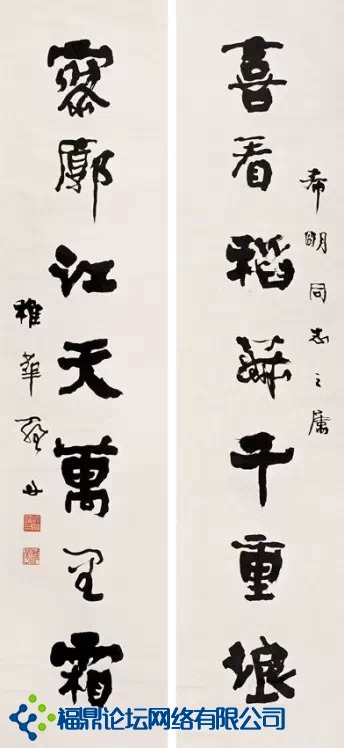 希明同志之屬
喜看稻菽千重浪
寥廓江天萬里霜
稚華羅丹
福鼎论坛网络有限公司